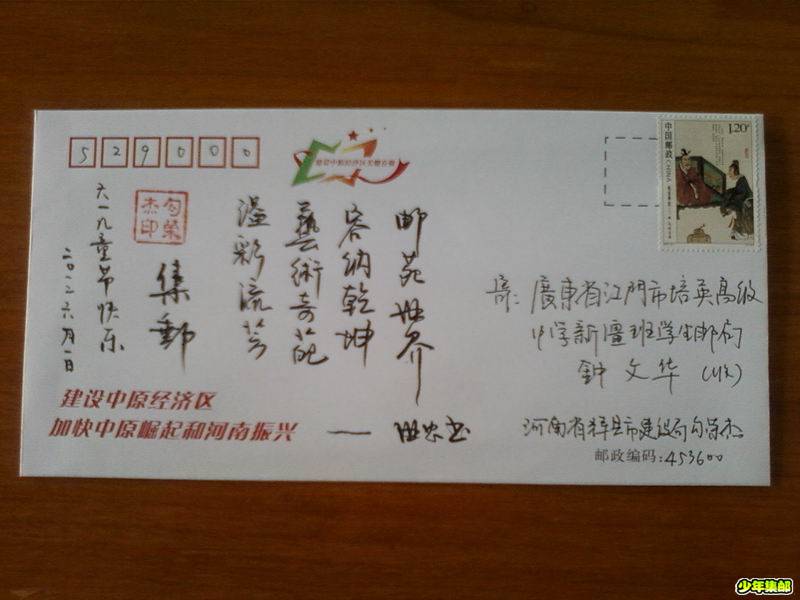 529000
建设中原经济区美丽古都
中国邮政 CHINA
1.20元
邮苑世界
容纳乾坤
藝術奇葩
溢彩流芳
集郵
勾榮
杰印
六一九童节快乐
二〇一二六月一日
寄: 廣東省江门市培英高级
中学新疆班学生邮局
鈡文华 (收)
建设中原经济区
加快中原崛起和河南振兴
河南省辉县市建设局勾荣杰
邮政编码:453600
少年集邮